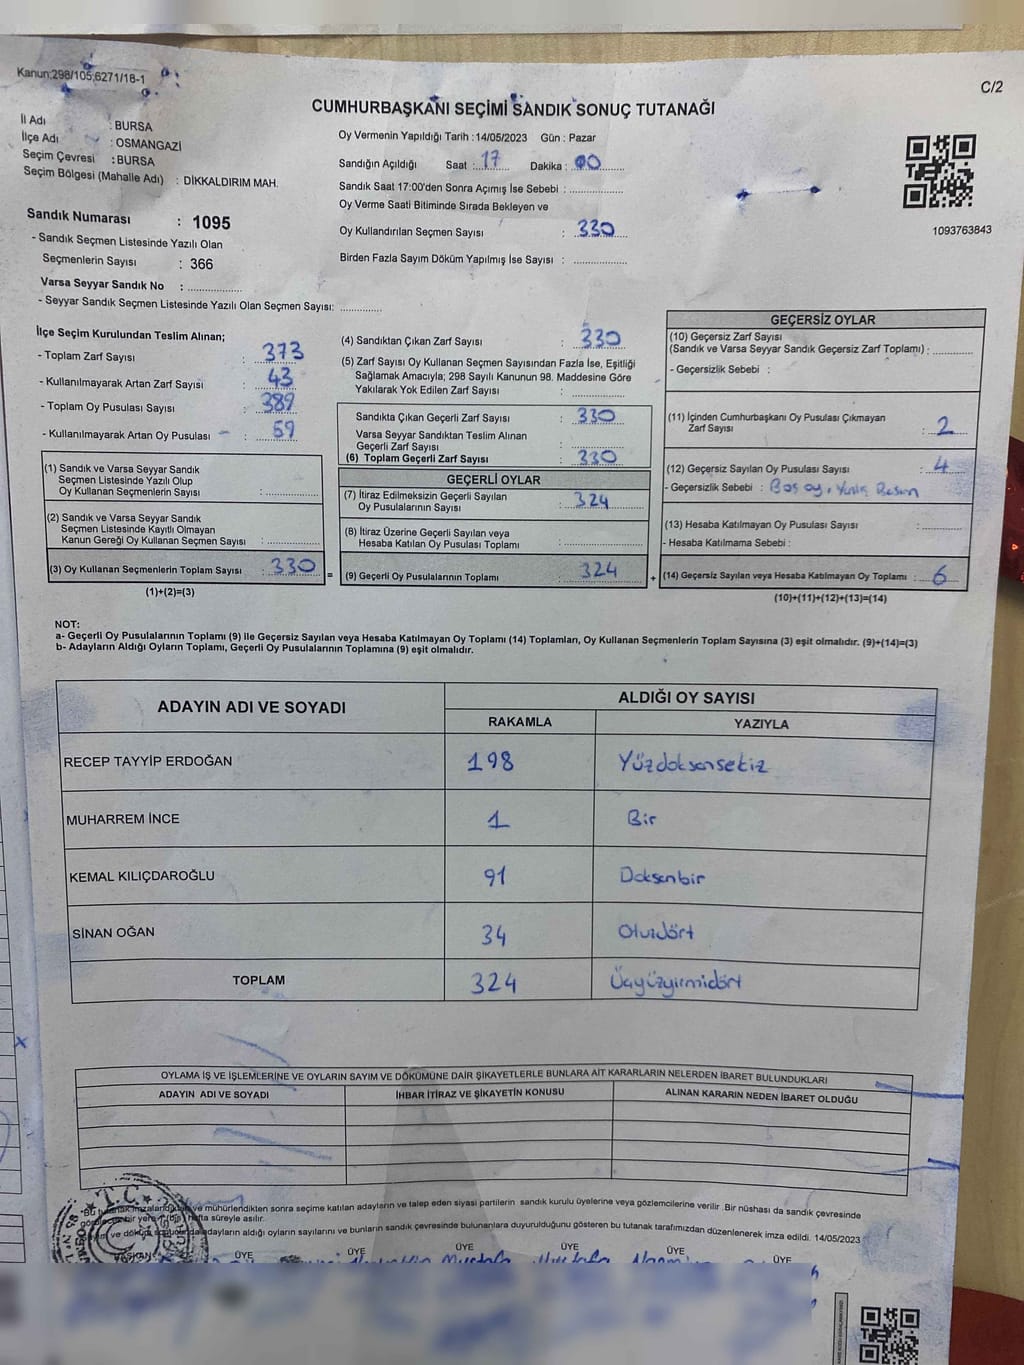 Kanun:298/105,6271/18-1
C/2
CUMHURBAŞKANI SEÇİMİ SANDIK SONUÇ TUTANAĞI
İl Adı : BURSA
İlçe Adı : OSMANGAZİ
Seçim Çevresi : BURSA
Seçim Bölgesi (Mahalle Adı) : DİKKALDIRIM MAH.
Oy Vermenin Yapıldığı Tarih : 14/05/2023 Gün : Pazar
Sandığın Açıldığı Saat : 17 Dakika : 00
Sandık Saat 17:00'den Sonra Açımış İse Sebebi :
Oy Verme Saati Bitiminde Sırada Bekleyen ve
Oy Kullandırılan Seçmen Sayısı : 330
Birden Fazla Sayım Döküm Yapılmış İse Sayısı :
1093763843
Sandık Numarası : 1095
- Sandık Seçmen Listesinde Yazılı Olan
Seçmenlerin Sayısı : 366
Varsa Seyyar Sandık No :
- Seyyar Sandık Seçmen Listesinde Yazılı Olan Seçmen Sayısı:
İlçe Seçim Kurulundan Teslim Alınan;
- Toplam Zarf Sayısı : 373
- Kullanılmayarak Artan Zarf Sayısı : 43
- Toplam Oy Pusulası Sayısı : 389
- Kullanılmayarak Artan Oy Pusulası : 59
(1) Sandık ve Varsa Seyyar Sandık
Seçmen Listesinde Yazılı Olup
Oy Kullanan Seçmenlerin Sayısı :
(2) Sandık ve Varsa Seyyar Sandık
Seçmen Listesinde Kayıtlı Olmayan
Kanun Gereği Oy Kullanan Seçmen Sayısı :
(3) Oy Kullanan Seçmenlerin Toplam Sayısı : 330
(1)+(2)=(3)
=
(4) Sandıktan Çıkan Zarf Sayısı : 330
(5) Zarf Sayısı Oy Kullanan Seçmen Sayısından Fazla İse, Eşitliği
Sağlamak Amacıyla; 298 Sayılı Kanunun 98. Maddesine Göre
Yakılarak Yok Edilen Zarf Sayısı :
Sandıkta Çıkan Geçerli Zarf Sayısı : 330
Varsa Seyyar Sandıktan Teslim Alınan
Geçerli Zarf Sayısı :
(6) Toplam Geçerli Zarf Sayısı : 330
GEÇERLİ OYLAR
(7) İtiraz Edilmeksizin Geçerli Sayılan
Oy Pusulalarının Sayısı : 324
(8) İtiraz Üzerine Geçerli Sayılan veya
Hesaba Katılan Oy Pusulası Toplamı :
(9) Geçerli Oy Pusulalarının Toplamı : 324
+
GEÇERSİZ OYLAR
(10) Geçersiz Zarf Sayısı
(Sandık ve Varsa Seyyar Sandık Geçersiz Zarf Toplamı) :
- Geçersizlik Sebebi :
(11) İçinden Cumhurbaşkanı Oy Pusulası Çıkmayan
Zarf Sayısı : 2
(12) Geçersiz Sayılan Oy Pusulası Sayısı : 4
- Geçersizlik Sebebi : Boş oy,
(13) Hesaba Katılmayan Oy Pusulası Sayısı :
- Hesaba Katılmama Sebebi :
(14) Geçersiz Sayılan veya Hesaba Katılmayan Oy Toplamı : 6
(10)+(11)+(12)+(13)=(14)
NOT:
a- Geçerli Oy Pusulalarının Toplamı (9) ile Geçersiz Sayılan veya Hesaba Katılmayan Oy Toplamı (14) Toplamları, Oy Kullanan Seçmenlerin Toplam Sayısına (3) eşit olmalıdır. (9)+(14)=(3)
b- Adayların Aldığı Oyların Toplamı, Geçerli Oy Pusulalarının Toplamına (9) eşit olmalıdır.
ADAYIN ADI VE SOYADI ALDIĞI OY SAYISI
RAKAMLA YAZIYLA
RECEP TAYYİP ERDOĞAN 198 Yüzdoksansekiz
MUHARREM İNCE 1 Bir
KEMAL KILIÇDAROĞLU 91 Doksanbir
SİNAN OĞAN 34 Otuzdört
TOPLAM 324 Üçyüzyirmidört
OYLAMA İŞ VE İŞLEMLERİNE VE OYLARIN SAYIM VE DÖKÜMÜNE DAİR ŞİKAYETLERLE BUNLARA AİT KARARLARIN NELERDEN İBARET BULUNDUKLARI
ADAYIN ADI VE SOYADI İHBAR İTİRAZ VE ŞİKAYETİN KONUSU ALINAN KARARIN NEDEN İBARET OLDUĞU
T.C.
ve mühürlendikten sonra seçime katılan adayların ve talep eden siyasi partilerin sandık kurulu üyelerine veya gözlemcilerine verilir .Bir nüshası da sandık çevresinde
hafta süreyle asılır.
adayların aldığı oyların sayılarını ve bunların sandık çevresinde bulunanlara duyurulduğunu gösteren bu tutanak tarafımızdan düzenlenerek imza edildi. 14/05/2023
BAŞKAN ÜYE ÜYE ÜYE ÜYE ÜYE ÜYE
Mustafa Mustafa